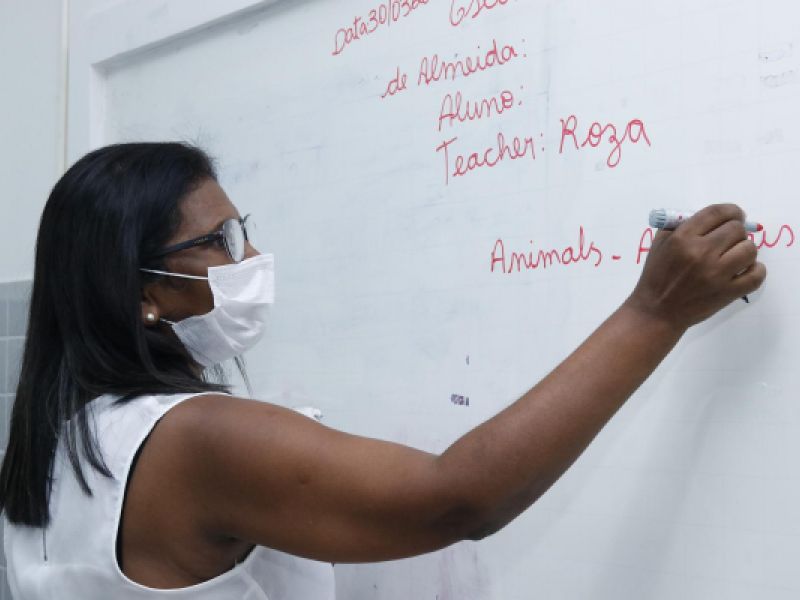 Data 30/03
de Almeida:
Aluno:
Teacher: Roza
Animals -